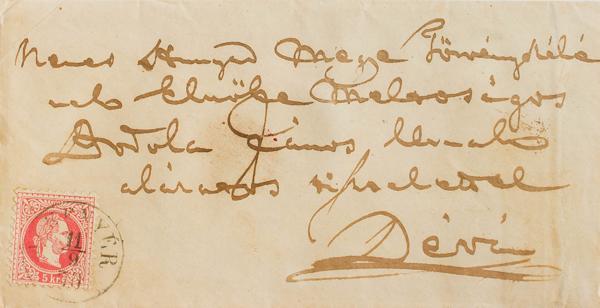 Nemes Hunyad Megye Törvényszéke
nek Elnöke Méltoságos
János Urnak
alázatos tisztelettel
Déva
5 kr
11
9